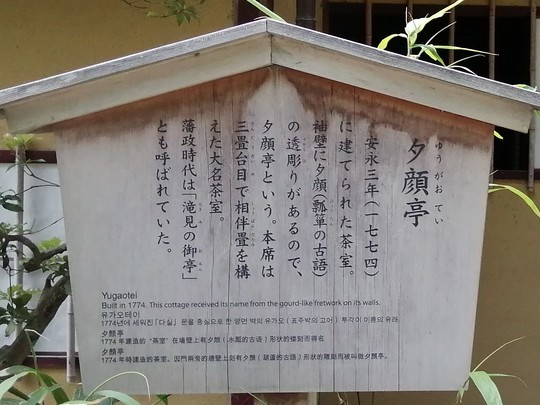 夕顔亭
ゆうがおてい
安永三年(一七七四)
に建てられた茶室。
袖壁に夕顔(瓢箪の古語)
の透彫りがあるので、
夕顔亭という。本席は
三畳台目で相伴畳を構
えた大名茶室。
藩政時代は「滝見の御亭」
とも呼ばれていた。
Yugaotei
Built in 1774. This cottage received its name from the gourd-like fretwork on its walls.
유가오테이
1774년에 세워진 「다실」 문을 중심으로 한 양면 벽의 유가오 (표주박의 고어) 투각이 이름의 유래.
夕顔亭
1774 年建造的“茶室”在墙壁上有夕颜(水瓢的古语)形状的镂刻而得名
夕顏亭
1774 年時建造的茶室。因門兩旁的牆壁上刻有夕顏(葫蘆的古語)形狀的雕刻而被叫做夕顏亭。